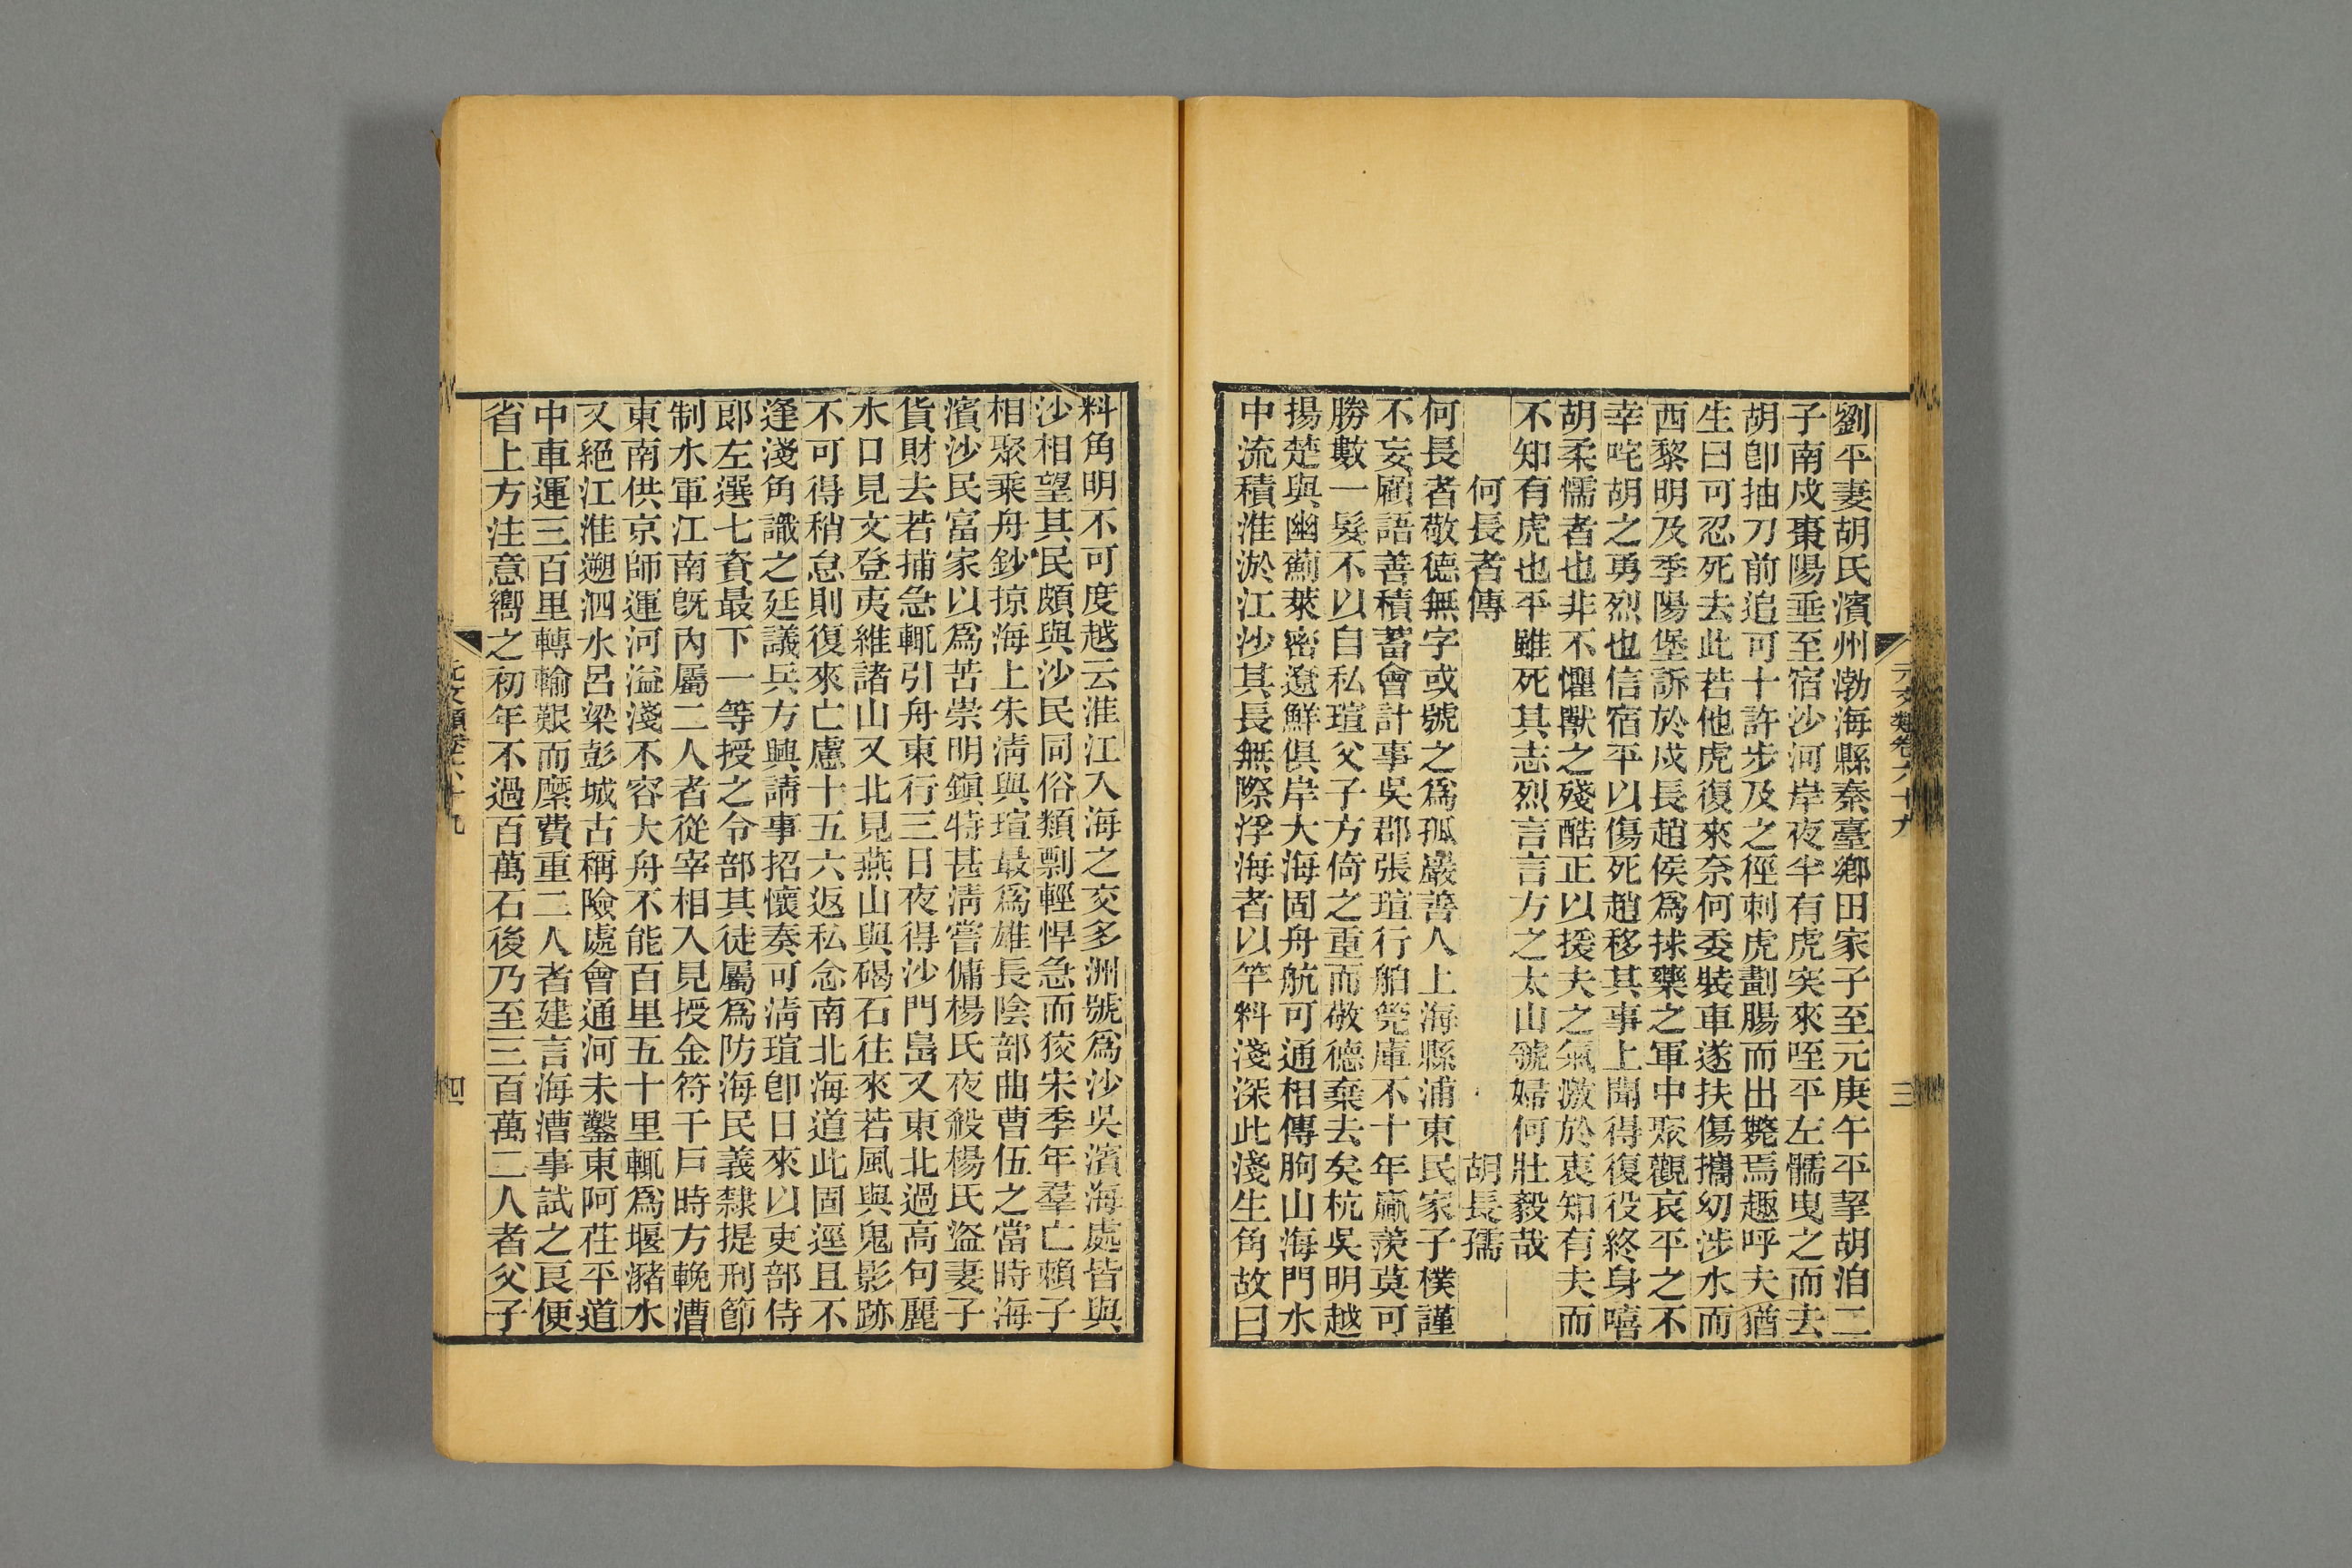 元文類卷六十九
三
劉平妻胡氏濱州渤海縣秦臺鄉田家子至元庚午平挈胡洎二
子南戍棗陽垂至宿沙河岸夜半有虎突來咥平左髃曳之而去
胡卽抽刀前追可十許步及之徑刺虎劃腸而出斃焉趣呼夫猶
生曰可忍死去此若他虎復來奈何委裝車遂扶傷攜幼涉水而
西黎明及季陽堡訴於戍長趙侯爲捄藥之軍中聚觀哀平之不
幸咤胡之勇烈也信宿平以傷死趙移其事上聞得復役終身嘻
胡柔懦者也非不懼獸之殘酷正以援夫之氣激於衷知有夫而
不知有虎也平雖死其志烈言言方之太山虢婦何壯毅哉
何長者傳　胡長孺
何長者敬德無字或號之爲孤巖善人上海縣浦東民家子樸謹
不妄顧語善積蓄會計事吳郡張瑄行舶筦庫不十年贏羨莫可
勝數一髮不以自私瑄父子方倚之重而敬德棄去矣杭吳明越
揚楚與幽薊萊密遼鮮俱岸大海固舟航可通相傳朐山海門水
中流積淮淤江沙其長無際浮海者以竿料淺深此淺生角故曰
料角明不可度越云淮江入海之交多洲號爲沙吳濱海處皆與
沙相望其民頗與沙民同俗類剽輕悍急而狡宋季年羣亡賴子
相聚乘舟鈔掠海上朱淸與瑄最爲雄長陰部曲曹伍之當時海
濱沙民富家以爲苦崇明鎭特甚淸嘗傭楊氏夜殺楊氏盜妻子
貨財去若捕急輒引舟東行三日夜得沙門島又東北過高句麗
水口見文登夷維諸山又北見燕山與碣石往來若風與鬼影跡
不可得稍怠則復來亡慮十五六返私念南北海道此固逕且不
逢淺角識之廷議兵方興請事招懷奏可淸瑄卽日來以吏部侍
郎左選七資最下一等授之令部其徒屬爲防海民義隸提刑節
制水軍江南旣內屬二人者從宰相入見授金符千戶時方輓漕
東南供京師運河溢淺不容大舟不能百里五十里輒爲堰瀦水
又絕江淮遡泗水呂梁彭城古稱險處會通河未鑿東阿茌平道
中車運三百里轉輸艱而縻費重二人者建言海漕事試之良便
省上方注意嚮之初年不過百萬石後乃至三百萬二人者父子
元文類卷六十九
四